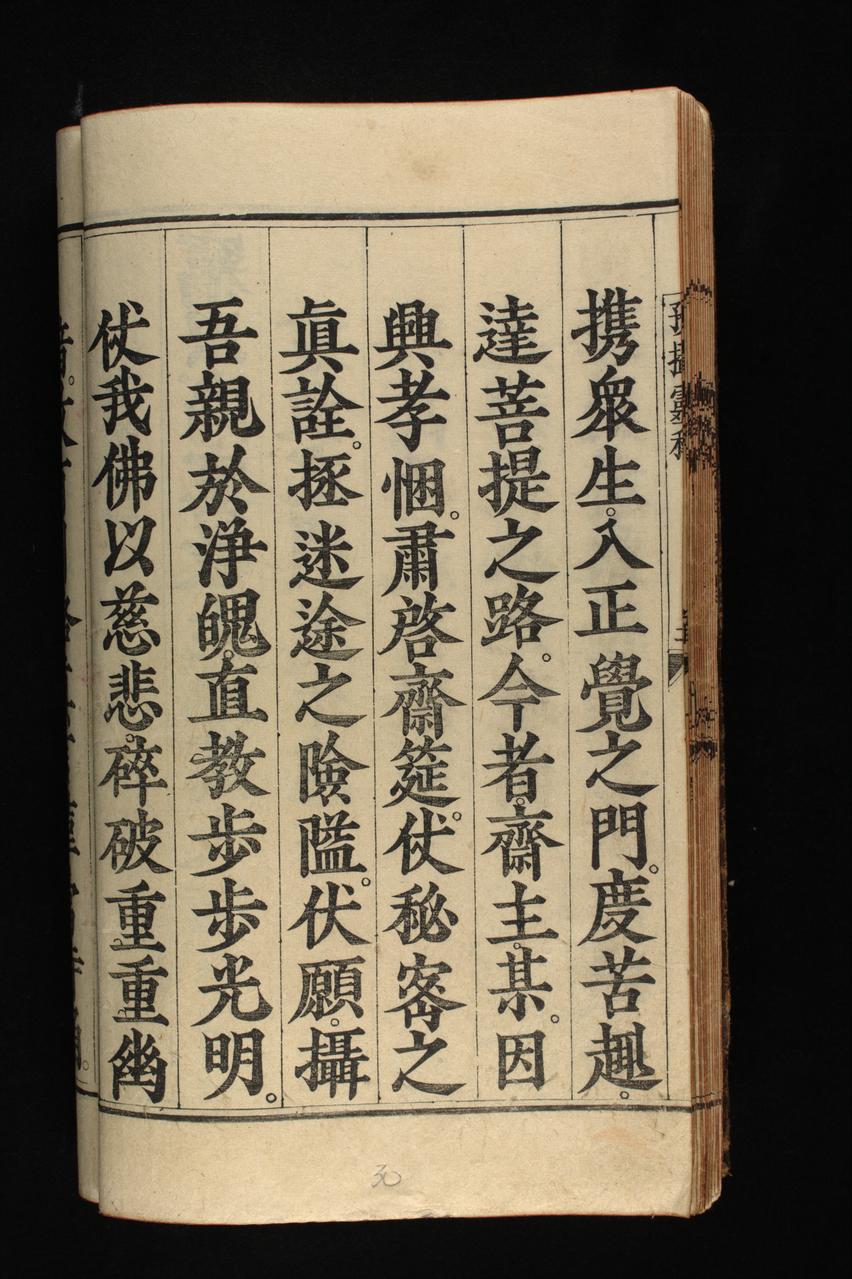 携衆生。入正覺之門。度苦趣。
達菩提之路。今者。齋主。某。因
興孝悃。肅啓齋筵。仗秘密之
眞詮。拯迷途之險隘。伏願。攝
吾親於淨魄。直教步步光明。
仗我佛以慈悲。碎破重重幽
30